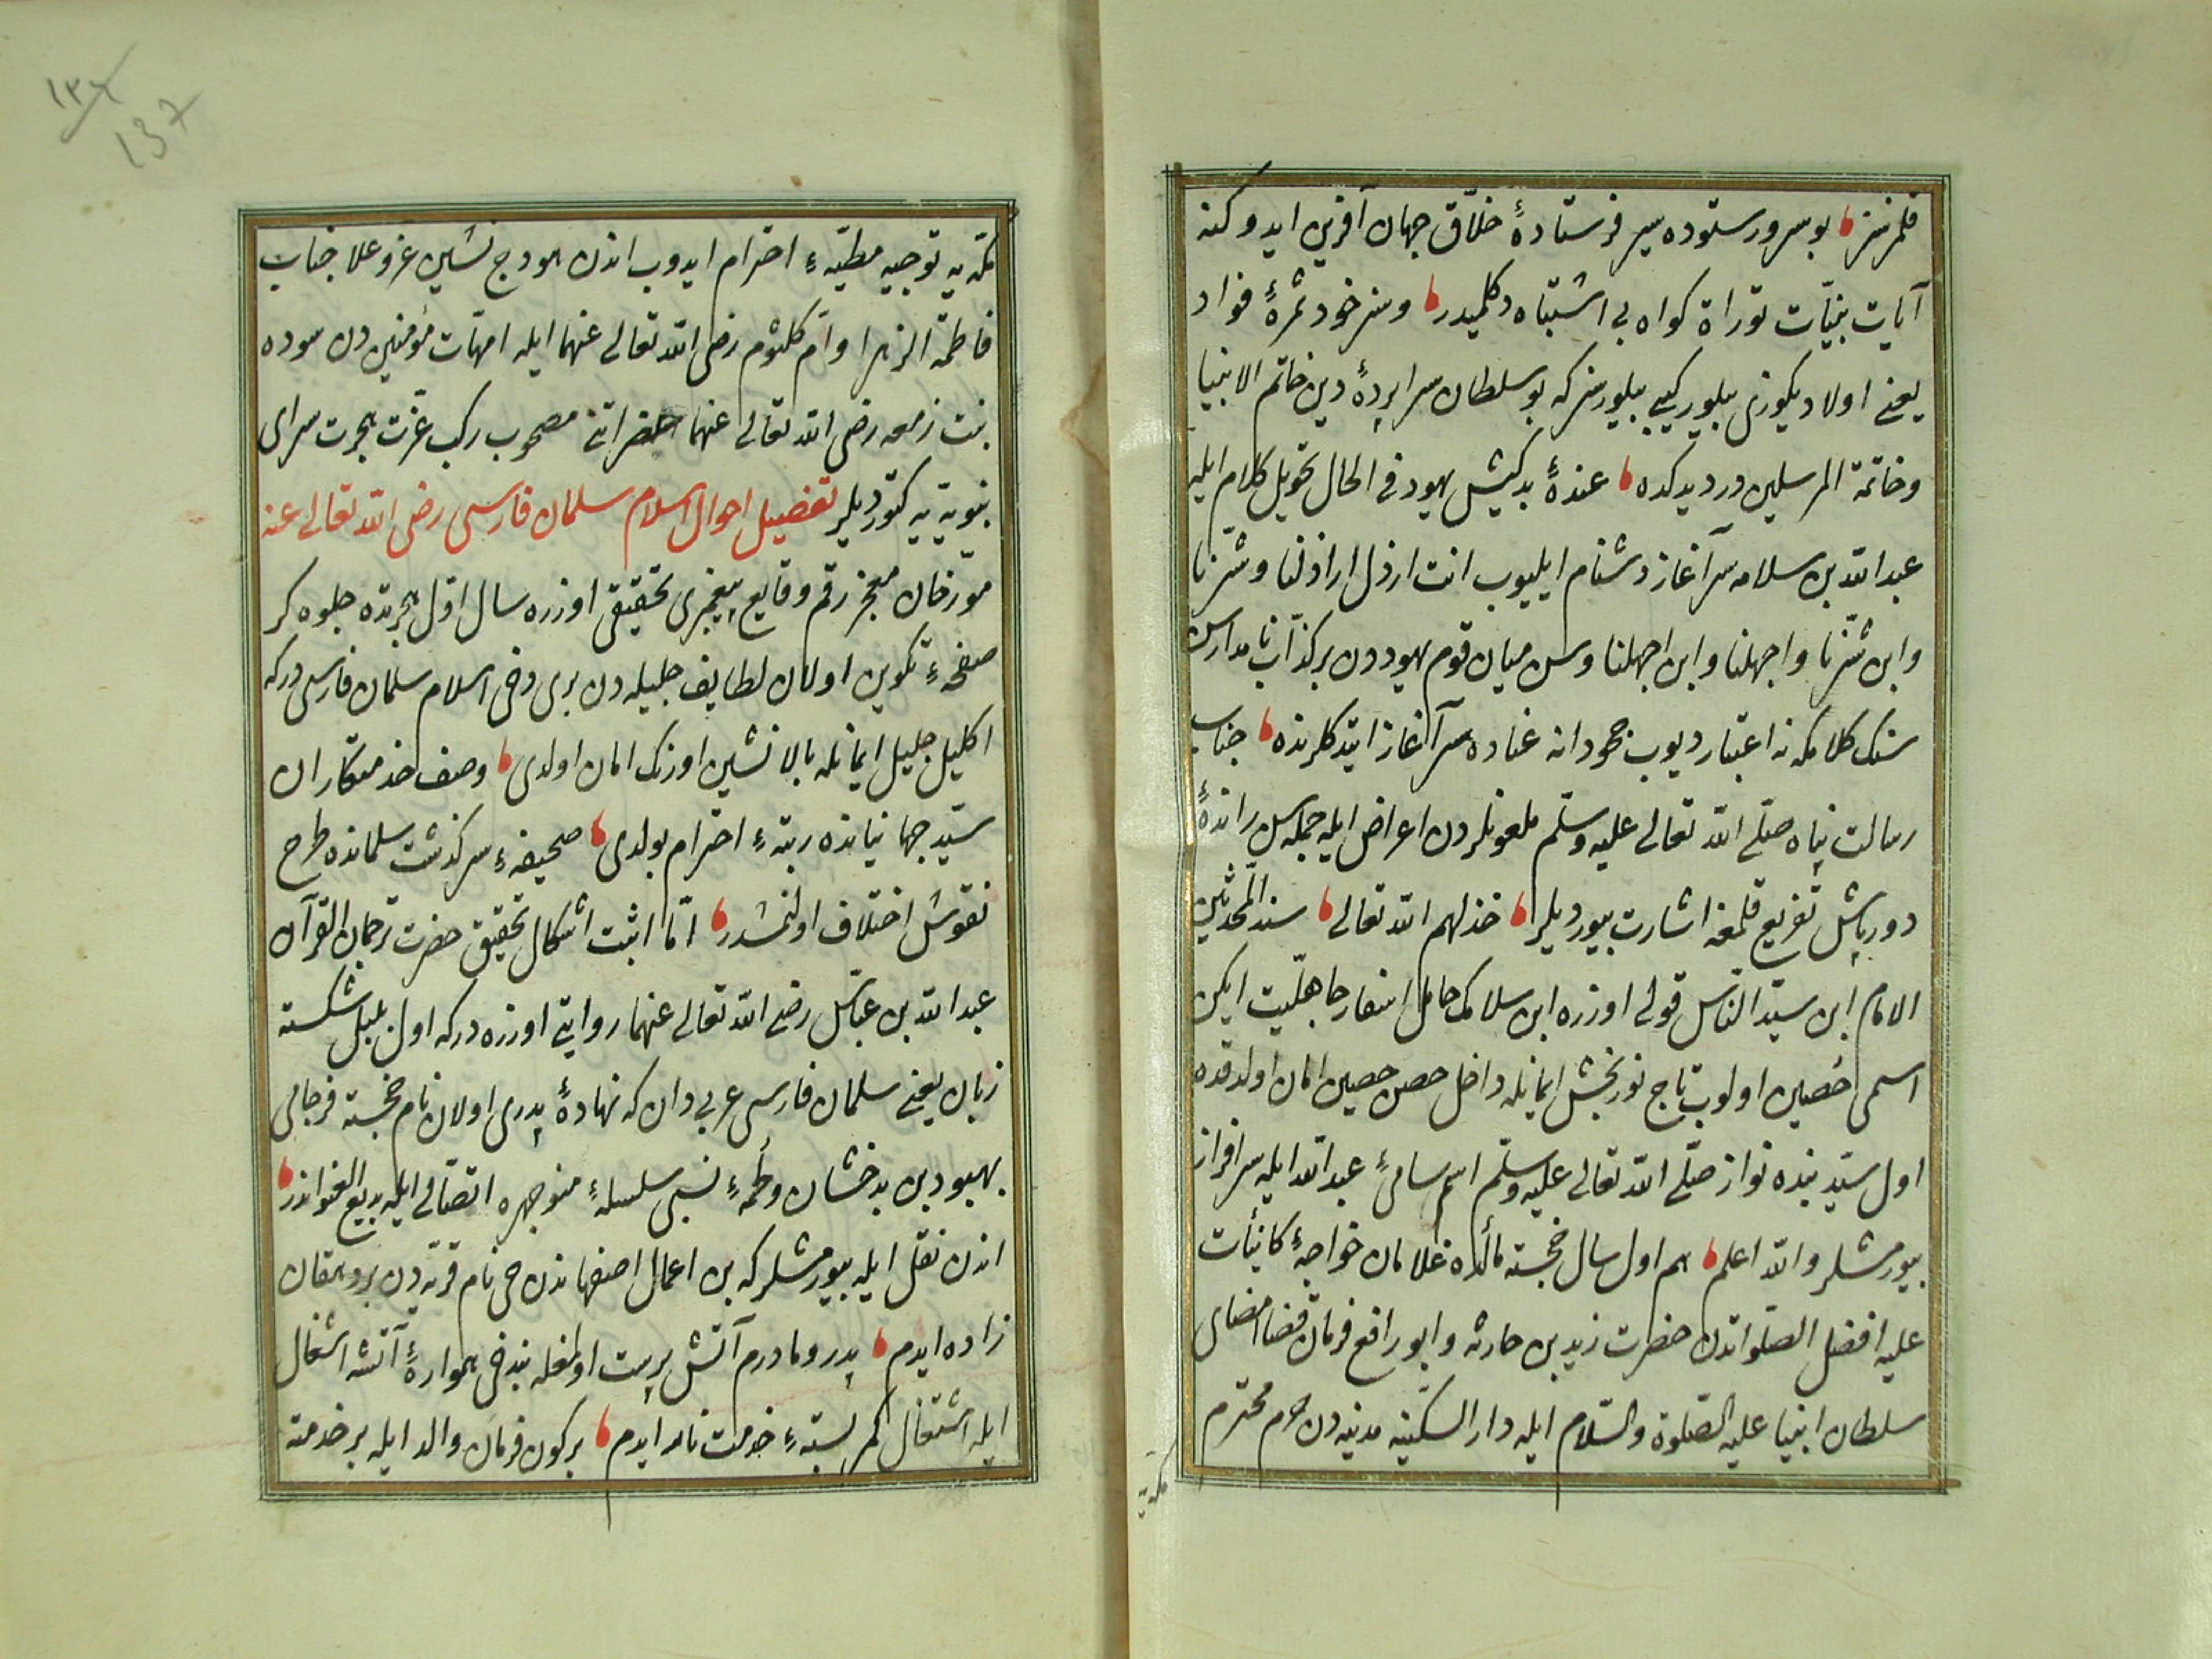 قلمرنسز بو سرور ستوده سیر فرستادهٔ خلاّق جهان آفرین ایدوکنه
آیات بینّات توراة کواه بی اشتباه دکلمیدر وسنر خود ثمرهٔ فواد
یعنی اولادیکوزی بیلور کیبی بیلورسز که بو سلطان سراپردهٔ دین خاتم الانبیا
وخاتمة المرسلین در دیدکده عندهٔ بدکیش یهود فی الحال تحویل کلام ایله
عبد الله بن سلامه سرآغاز دشنام ایلیوب انت ارذل اراذلنا وشرّنا
وابن شرّنا واجهلنا وابن اجهلنا وسن میان قوم یهوددن بر کذّاب نامدارسن
سنک کلامکه نه اعتبار دیوب جحودانه عناده سرآغاز ایتدکلرنده جناب
رسالت پناه صلّی الله تعالی علیه وسلّم ملعونلردن اعراض ایله جمله سن راندهٔ
دورباش تقریع قلمغه اشارت بیوردیلر خذلهم الله تعالی سند المحدّثین
الامام ابن سیّد الناس قولی اوزره ابن سلامک حامل اسفار جاهلیّت ایکن
اسمی حُصین اولوب تاج نوربخش ایمانله داخل حصن حصین امان اولدقده
اول سیّد بنده نواز صلّی الله تعالی علیه وسلّم اسم سامیءِ عبد الله ایله سرافراز
بیورمشلر والله اعلم هم اول سال خجسته مآلده غلامان خواجهٔ کائنات
علیه افضل الصلواتدن حضرت زید بن حارثه وابو رافع فرمان قضا امضای
سلطان انبیا علیه الصلوة والسّلام ایله دار السکینه مدینه دن حرم محترم
مکّه یه
١٣٧
137
مکّه یه توجیه مطیّهءِ احترام ایدوب اندن هودج نشین عز وعلا جناب
فاطمة الزهرا وامّ کلثوم رضی الله تعالی عنهما ایله امهّات مؤمنین دن سوده
بنت زمعه رضی الله تعالی عنهما حضراتنی مصحوب رکب عزّت هجرت سرای
نبویه یه کتوردیلر تفضیل احوال اسلام سلمان فارسی رضی الله تعالی عنه
مورّخان معجز رقم وقایع پیغمبری تحقیقی اوزره سال اوّل هجرتده جلوه کر
صفحهءِ تکوین اولان لطایف جلیله دن بری دخی اسلام سلمان فارسی درکه
اکلیل جلیل ایمانله بالانشین اورنک امان اولدی وصف خدمتکاران
سیّد جهانیانده رتبهءِ احترام بولدی صحیفهءِ سرکذشت سلمانده طرح
نقوش اختلاف اولنمشدر امّا اثبت اشکال تحقیق حضرت ترجمان القرآن
عبد الله بن عبّاس رضی الله تعالی عنهما روایتی اوزره درکه اول بلبل شکسته
زبان یعنی سلمان فارسی عربی دان که نهادهٔ پدری اولان نام خجسته فرجامی
بهبود بن بدخشان ولُحمهءِ نسبی سلسلهءِ منوجهره اتصّالی ایله بدیع العنواندر
اندن نقل ایله بیورمشلرکه بن اعمال اصفهاندن جی نام قریه دن بر دهقان
زاده ایدم پدر ومادرم آتش پرست اولمغله بندخی همواره آتشه اشغال
ایله اشتغال کمر بستهءِ خدمت نار ایدم بر کون فرمان والد ایله بر خدمته